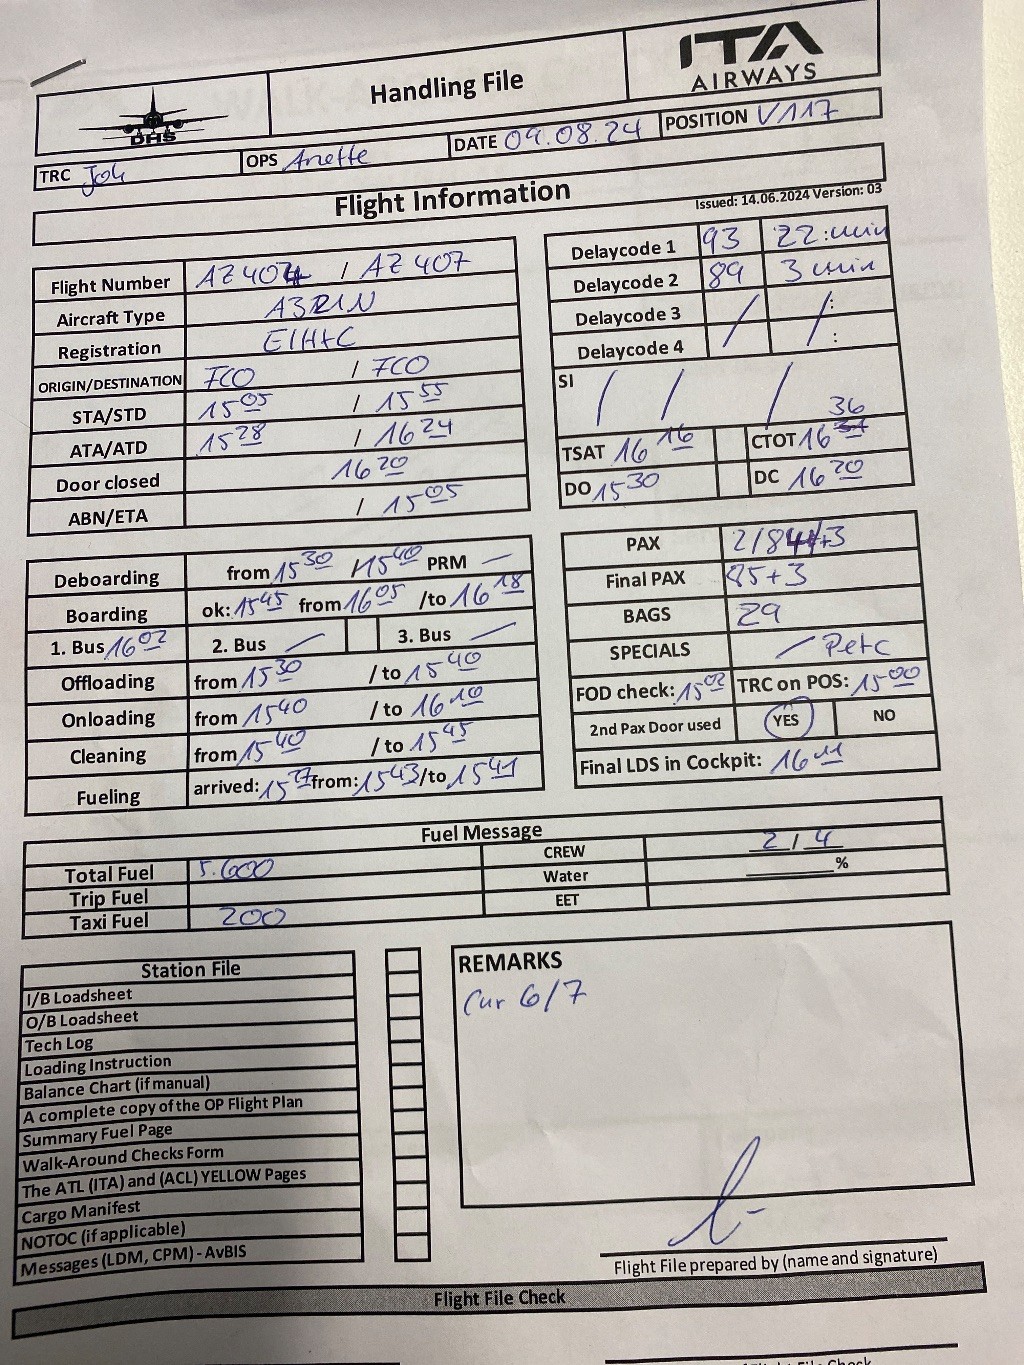 DHS
Handling File
ITA
AIRWAYS
TRC Joh OPS Anette DATE 09.08.24 POSITION V117
Flight Information
Issued: 14.06.2024 Version: 03
Flight Number AZ 404 / AZ 407
Aircraft Type A32N
Registration EIHHC
ORIGIN/DESTINATION FCO / FCO
STA/STD 1505 / 1555
ATA/ATD 1528 / 1624
Door closed 1620
ABN/ETA / 1505
Delaycode 1 93 22:min
Delaycode 2 89 3 min
Delaycode 3 / / :
Delaycode 4 :
SI / / /
36
TSAT 1616 CTOT 16
DO 1530 DC 1620
Deboarding from 1530 / 1540 PRM —
Boarding ok: 1545 from 1605 /to 1618
1. Bus 1602 2. Bus — 3. Bus —
Offloading from 1530 / to 1540
Onloading from 1540 / to 1610
Cleaning from 1540 / to 1545
Fueling arrived: 1527 from: 1543 /to 1541
PAX 2/84+3
Final PAX 85+3
BAGS 29
SPECIALS — Petc
FOD check: 1502 TRC on POS: 1500
2nd Pax Door used YES NO
Final LDS in Cockpit: 1611
Fuel Message
Total Fuel 5.600 CREW 2 / 4
Trip Fuel Water %
Taxi Fuel 200 EET
Station File
I/B Loadsheet
O/B Loadsheet
Tech Log
Loading Instruction
Balance Chart (if manual)
A complete copy of the OP Flight Plan
Summary Fuel Page
Walk-Around Checks Form
The ATL (ITA) and (ACL) YELLOW Pages
Cargo Manifest
NOTOC (if applicable)
Messages (LDM, CPM) - AvBIS
REMARKS
Cur 6/7
Flight File prepared by (name and signature)
Flight File Check